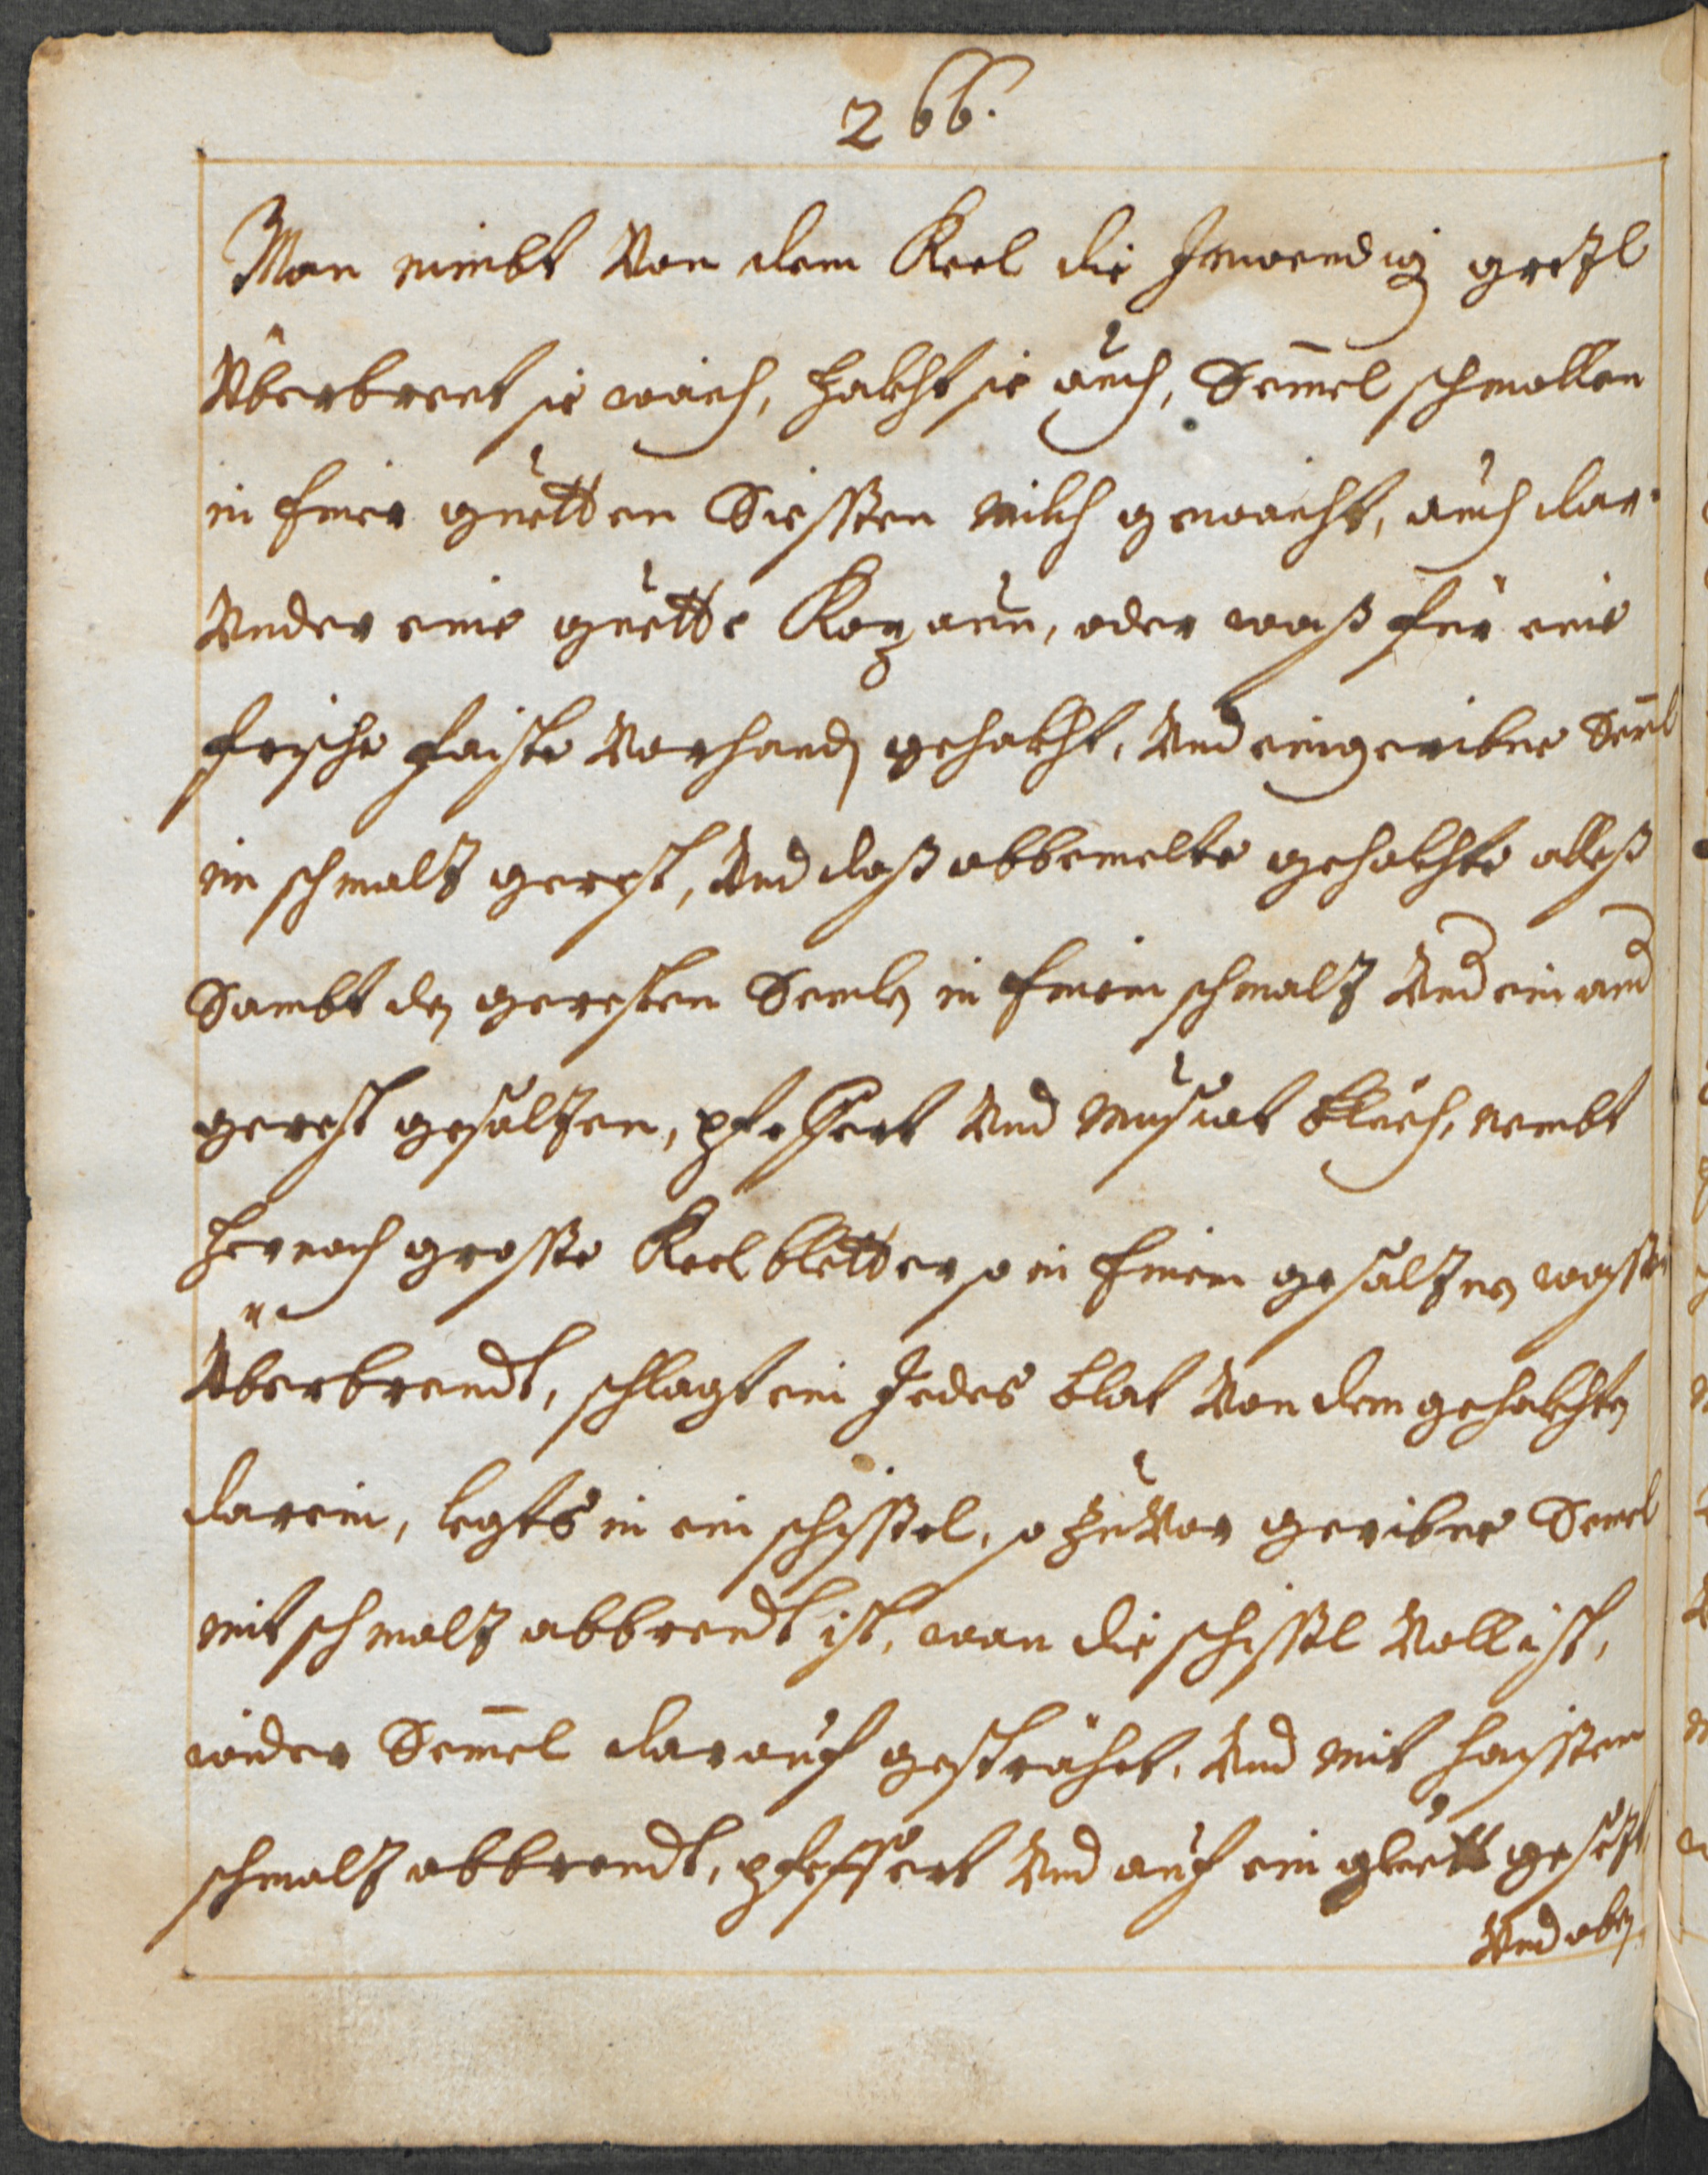 266.
Man nimbt Von dem Keel die Inwendig grezl
Vberbrent sie waich, hakht sie auch, Sem̄el schmollen
in einer guetten Siessen Milch gewaicht, auch dar
Vnder eine guette Kapaun, oder waß für eine
frische faiste Vorhandn gehakht, Vnd ein geribne Sem̄l
im schmalz gerest, Vnd daß obbemelte gehakhte alleß
Sambt den geresten Semln in einem schmalz Vnd ein and
gerest gesalzen, pfeffert Vnd Muscat blüeh, nembt
hernach grosse Keel bletter so in einem gesalznen wasser
Überbrendt, schlagt ein Jedes blat Von dem gehakhten
darein, legts in ein schissel, so zuVor geribne Semel
mit schmalz abbrendt ist, wan die schissel Voll ist,
wider Sem̄el darauf gesträhet, Vnd mit haissen
schmalz abbrendt, pfeffert Vnd auf ein gluett gesezt
Vnd oben